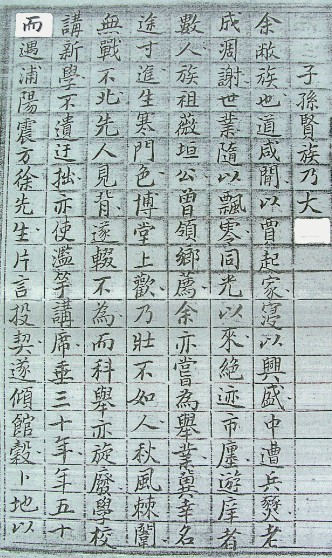 子孫賢族乃大
余敝族也道咸間以賈起家寖以興盛中遭兵燹老
成凋謝世業隨以飄零同光以來絕迹市廛遊庠者
數人族祖薇垣公曾領鄉薦余亦嘗為舉業冀幸名
途寸進生寒門色博堂上歡乃壯不如人秋風棘闈
無戰不北先人見背遂輟不為而科舉亦旋廢學校
講新學不遺迂拙亦使濫竽講席垂三十年年五十
而遇浦陽震方徐先生片言投契遂傾館穀卜地以